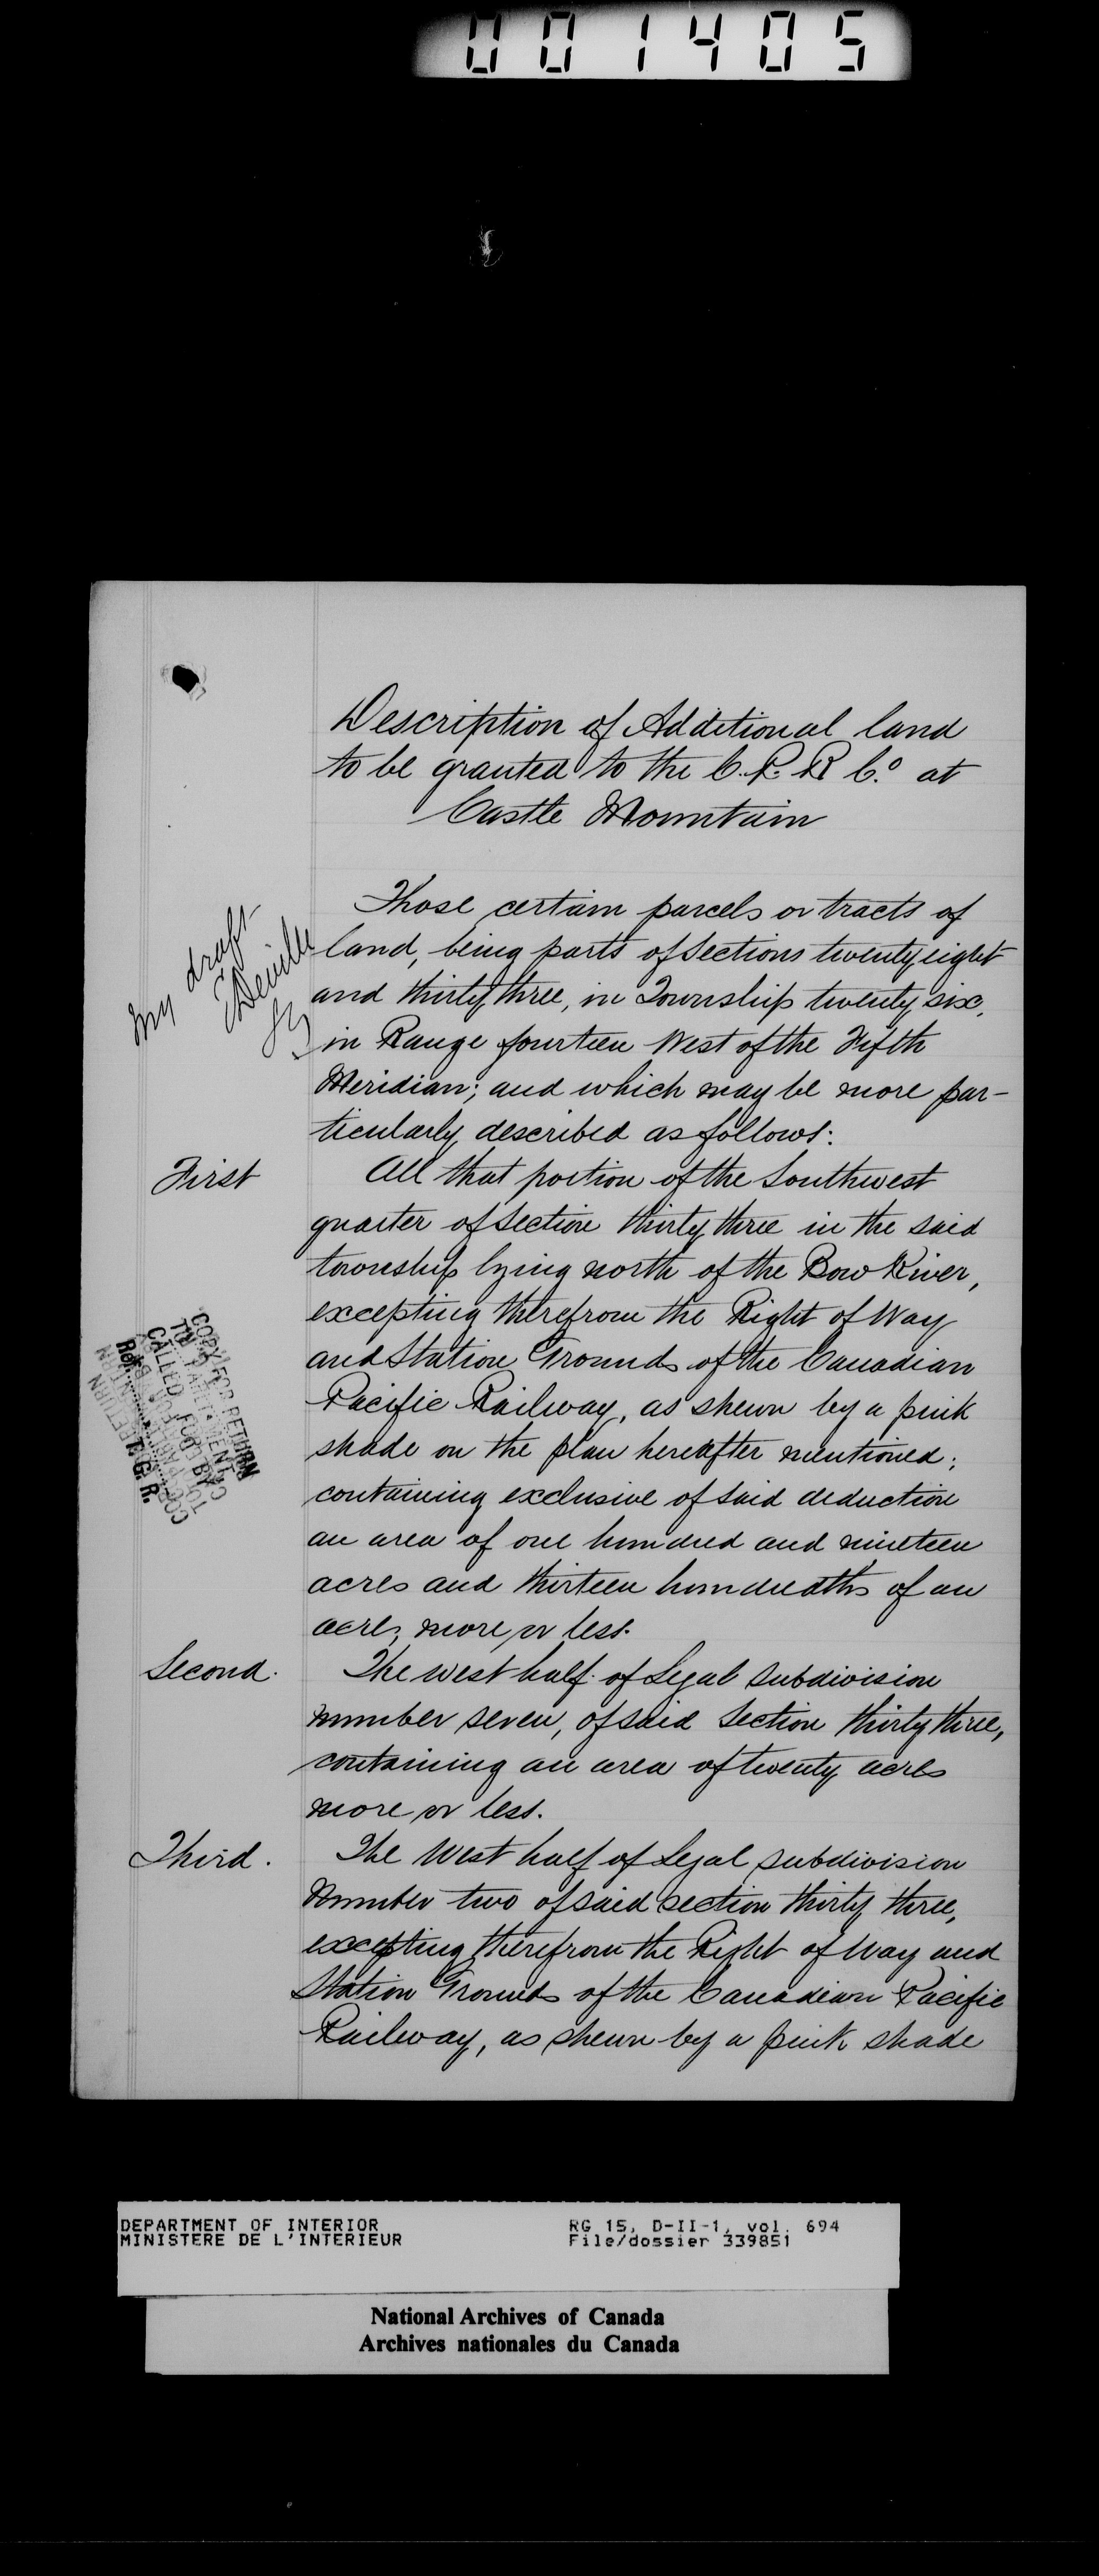 001405
Description of Additional land
to be granted to the C. P. R Co. at
Castle Mountain
Those certain parcels or tracts of
land, being parts of Sections twenty eight
and thirty three, in Township twenty six,
in Range fourteen West of the Fifth
Meridian; and which may be more par-
ticularly described as follows:
My draft
EDeville
First
All that portion of the Southwest
quarter of Section thirty three in the said
township lying north of the Bow River,
excepting therefrom the Right of Way
and Station Grounds of the Canadian
Pacific Railway, as shewn by a pink
shade on the plan hereafter mentioned;
containing exclusive of said deduction
an area of one hundred and nineteen
acres and thirteen hundredths of an
acre, more or less.
COPY FOR RETURN
TO PARLIAMENT
CALLED FOR BY
Ref. T. G. R.
Second.
The west half of Legal Subdivision
number seven, of said Section thirty three,
containing an area of twenty acres
more or less.
Third.
The West half of Legal subdivision
Number two of said section thirty three,
excepting therefrom the Right of Way and
Station Grounds of the Canadian Pacific
Railway, as shewn by a pink shade
DEPARTMENT OF INTERIOR
MINISTERE DE L'INTERIEUR
RG 15, D-II-1, vol. 694
File/dossier 339851
National Archives of Canada
Archives nationales du Canada